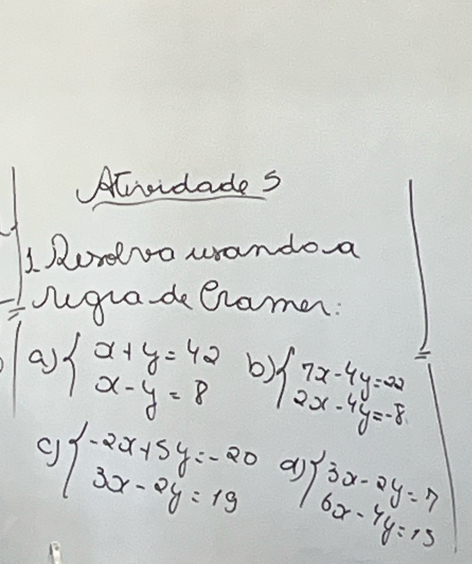 Atividade 5
1. Resolva usando a
regra de Cramer:
a) { x + y = 42
x - y = 8
b) { 7x - 4y = 22
2x - 4y = -8
c) { -2x + 5y = -20
3x - 2y = 19
d) { 3x - 2y = 7
6x - 4y = 15